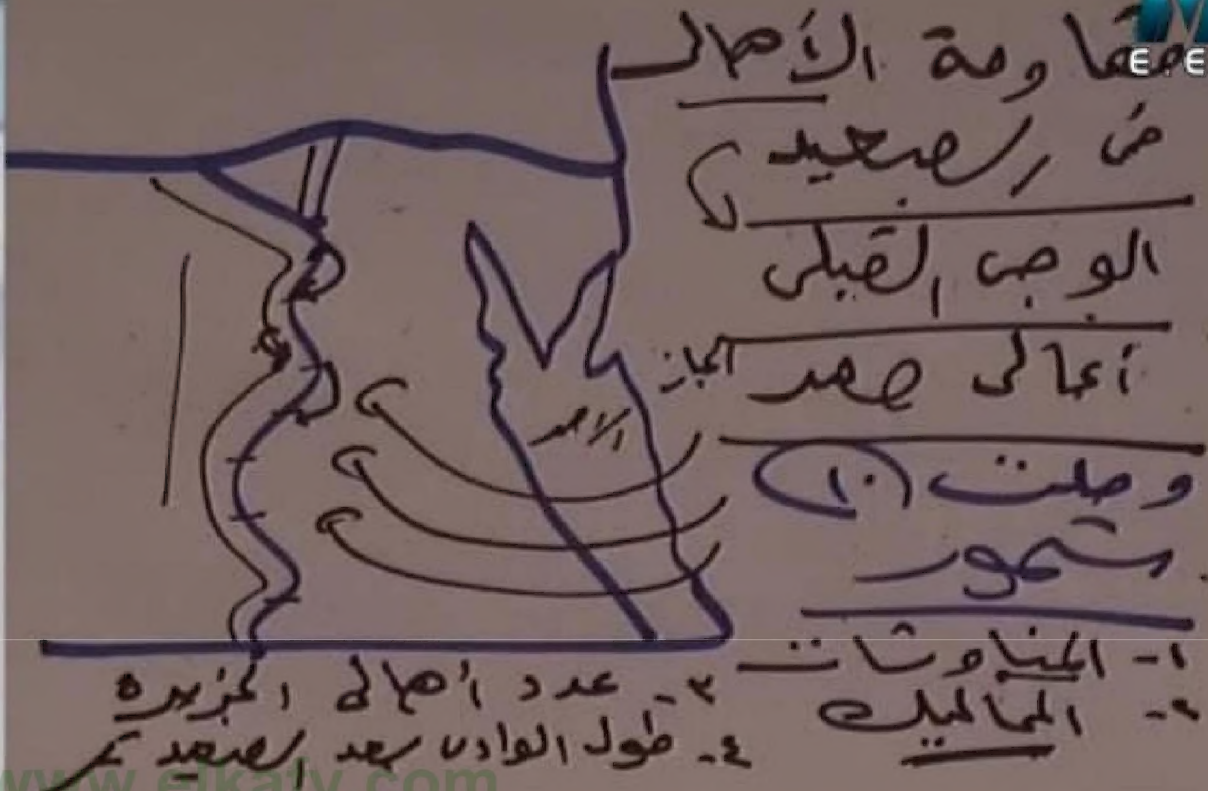 مقاومة الأهالى
فى الصعيد
الوجه القبلى
أعالى مصر
وصلت (١٠)
شهور
١- المناوشات
٢- المماليك
٣- عدد أهالى الجزيرة
٤- طول الوادى بعد الصعيد
الحجاز
الاحمر
E.E
www.elkafy.com